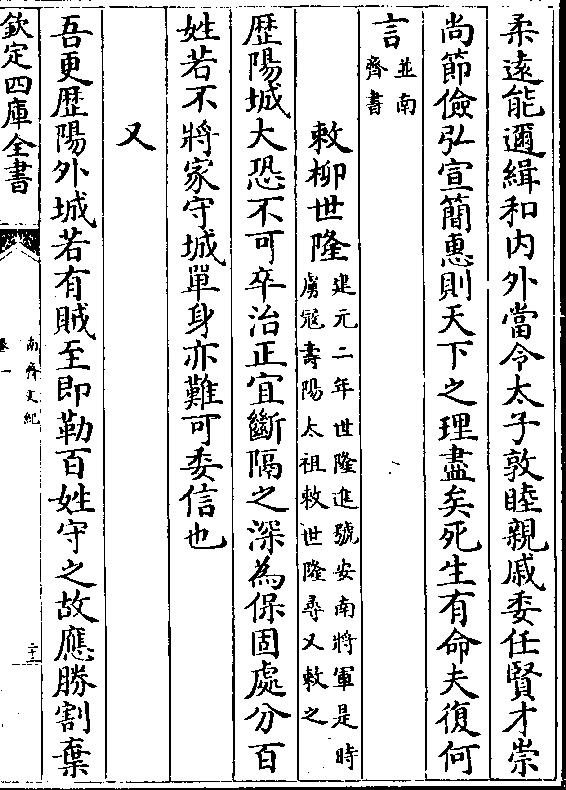 柔遠能邇緝和内外當令太子敦睦親戚委任賢才崇
尚節儉弘宣簡惠則天下之理盡矣死生有命夫復何
言並南
齊書
敕柳世隆建元二年世隆進號安南將軍是時
虜寇壽陽太祖敕世隆尋又敕之
歴陽城大恐不可卒治正宜斷隔之深為保固處分百
姓若不將家守城單身亦難可委信也
又
吾更歴陽外城若有賊至即勒百姓守之故應勝割棄
欽定四庫全書
南齊文紀
卷一